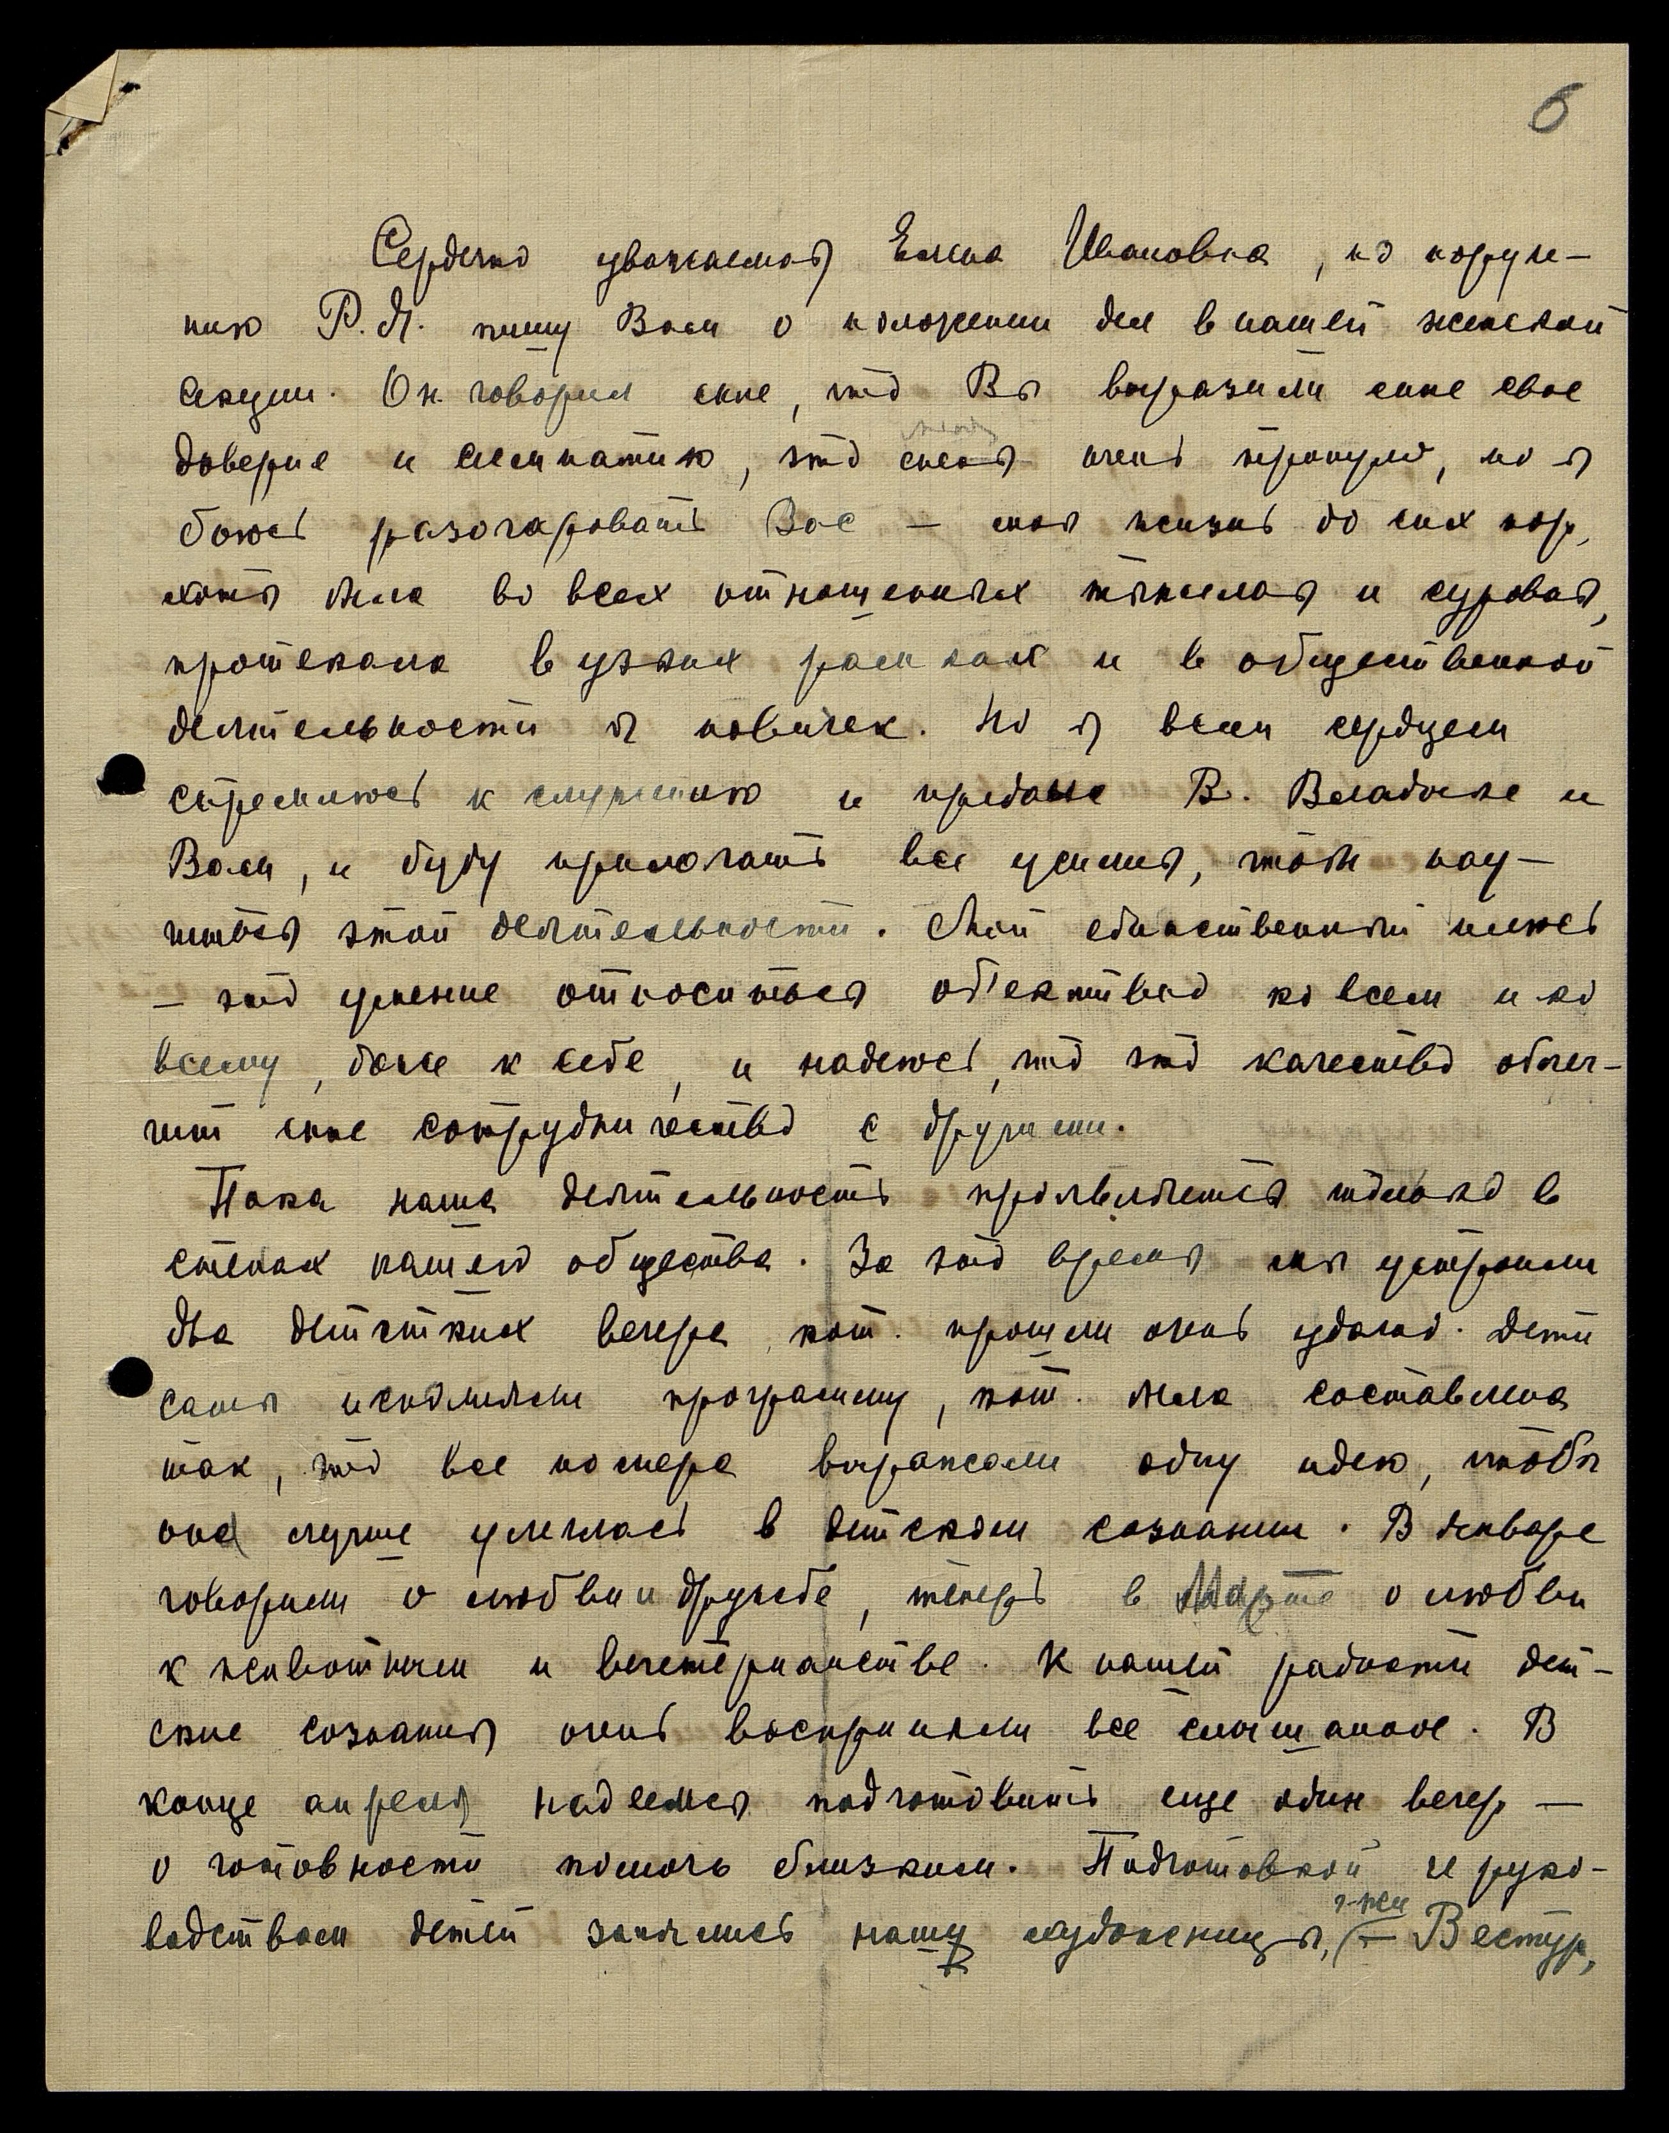 6
Сердечно уважаемая Елена Ивановна, по поруче-
нию Р.Я. пишу Вам о положении дел в нашей женской
секции. Он говорил мне, что Вы выразили мне свое
доверие и симпатию, это меня очень тронуло, но я
боюсь разочаровать Вас — моя жизнь до сих пор,
хотя была во всех отношениях тяжелая и суровая,
протекала в узких рамках и в общественной
деятельности я новичек. Но я всем сердцем
стремлюсь к служению и предана В. Владыке и
Вам, и буду прилагать все усилия, чтобы нау-
читься этой деятельности. Мой единственный плюс
— это умение относиться об'ективно ко всем и ко
всему, даже к себе, и надеюсь, что это качество облег-
чит мне сотрудничество с другими.
Пока наша деятельность проявляется только в
стенах нашего общества. За это время мы устроили
два детских вечера, кот. прошли очень удачно. Дети
сами исполняли программу, кот. была составлена
так, что все номера выражали одну идею, чтобы
она лучше улеглась в детском сознании. В январе
говорили о любви и дружбе, теперь в Марте о любви
к животным и вегетерианстве. К нашей радости дет-
ские сознания очень восприняли все слышанное. В
конце апреля надеемся подготовить еще один вечер —
о готовности помочь близким. Подготовкой и руко-
водством детей занялись наши художницы, г-жи
— Вестур,